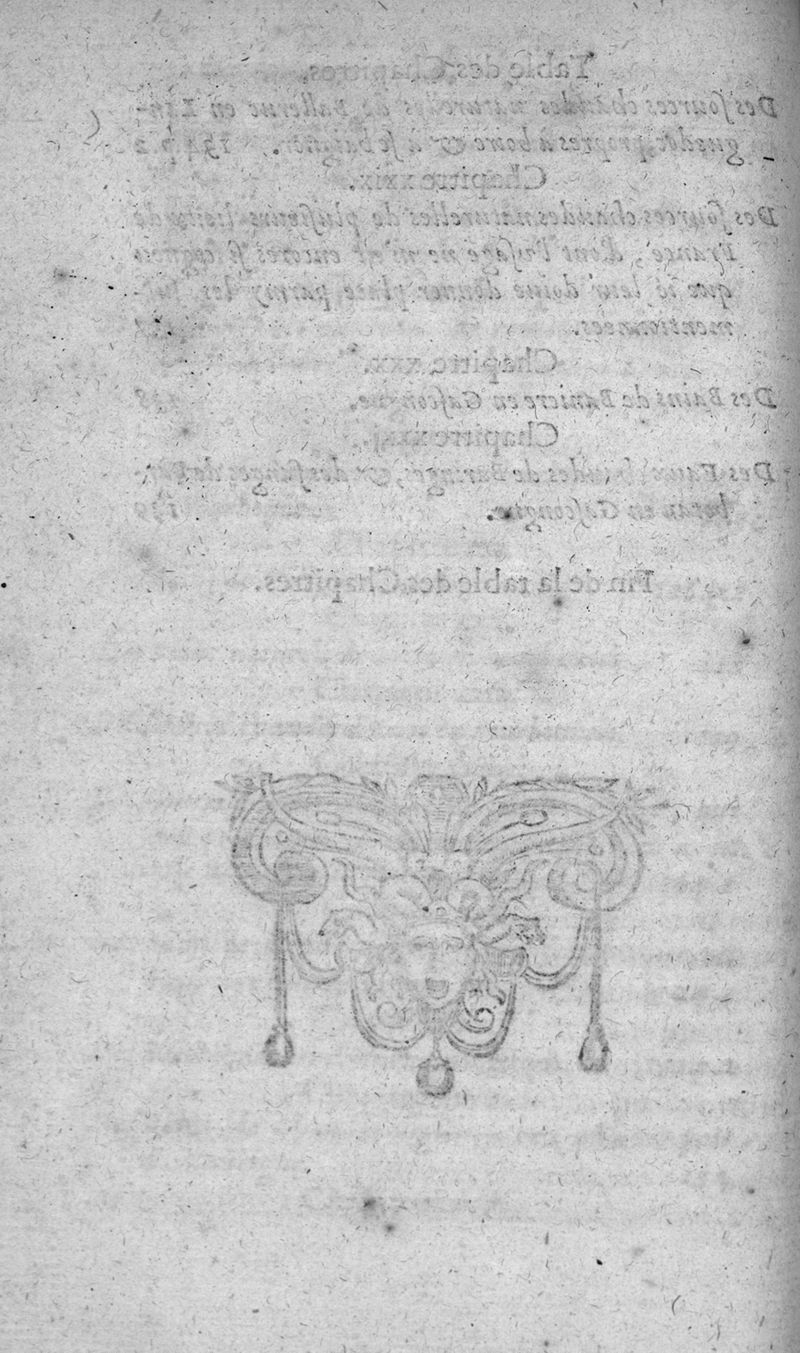 Table des Chapitres.
Des sources chaudes naturelles de Balleruc en Lan-
guedoc, propres à boire & à se baigner. 154
Chapitre xxix.
Des sources chaudes naturelles de plusieurs lieux de
France, dont l'vsage ne m'est encores si
que ie leur doiue donner place parmy les sus-
mentionnees.
Chapitre xxx.
Des Bains de Baniere en Gascongne.
Chapitre xxxj.
Des Eaux chaudes de Baringe, & des fanges de Bar-
botan en Gascongne. 159
Fin de la table des Chapitres.